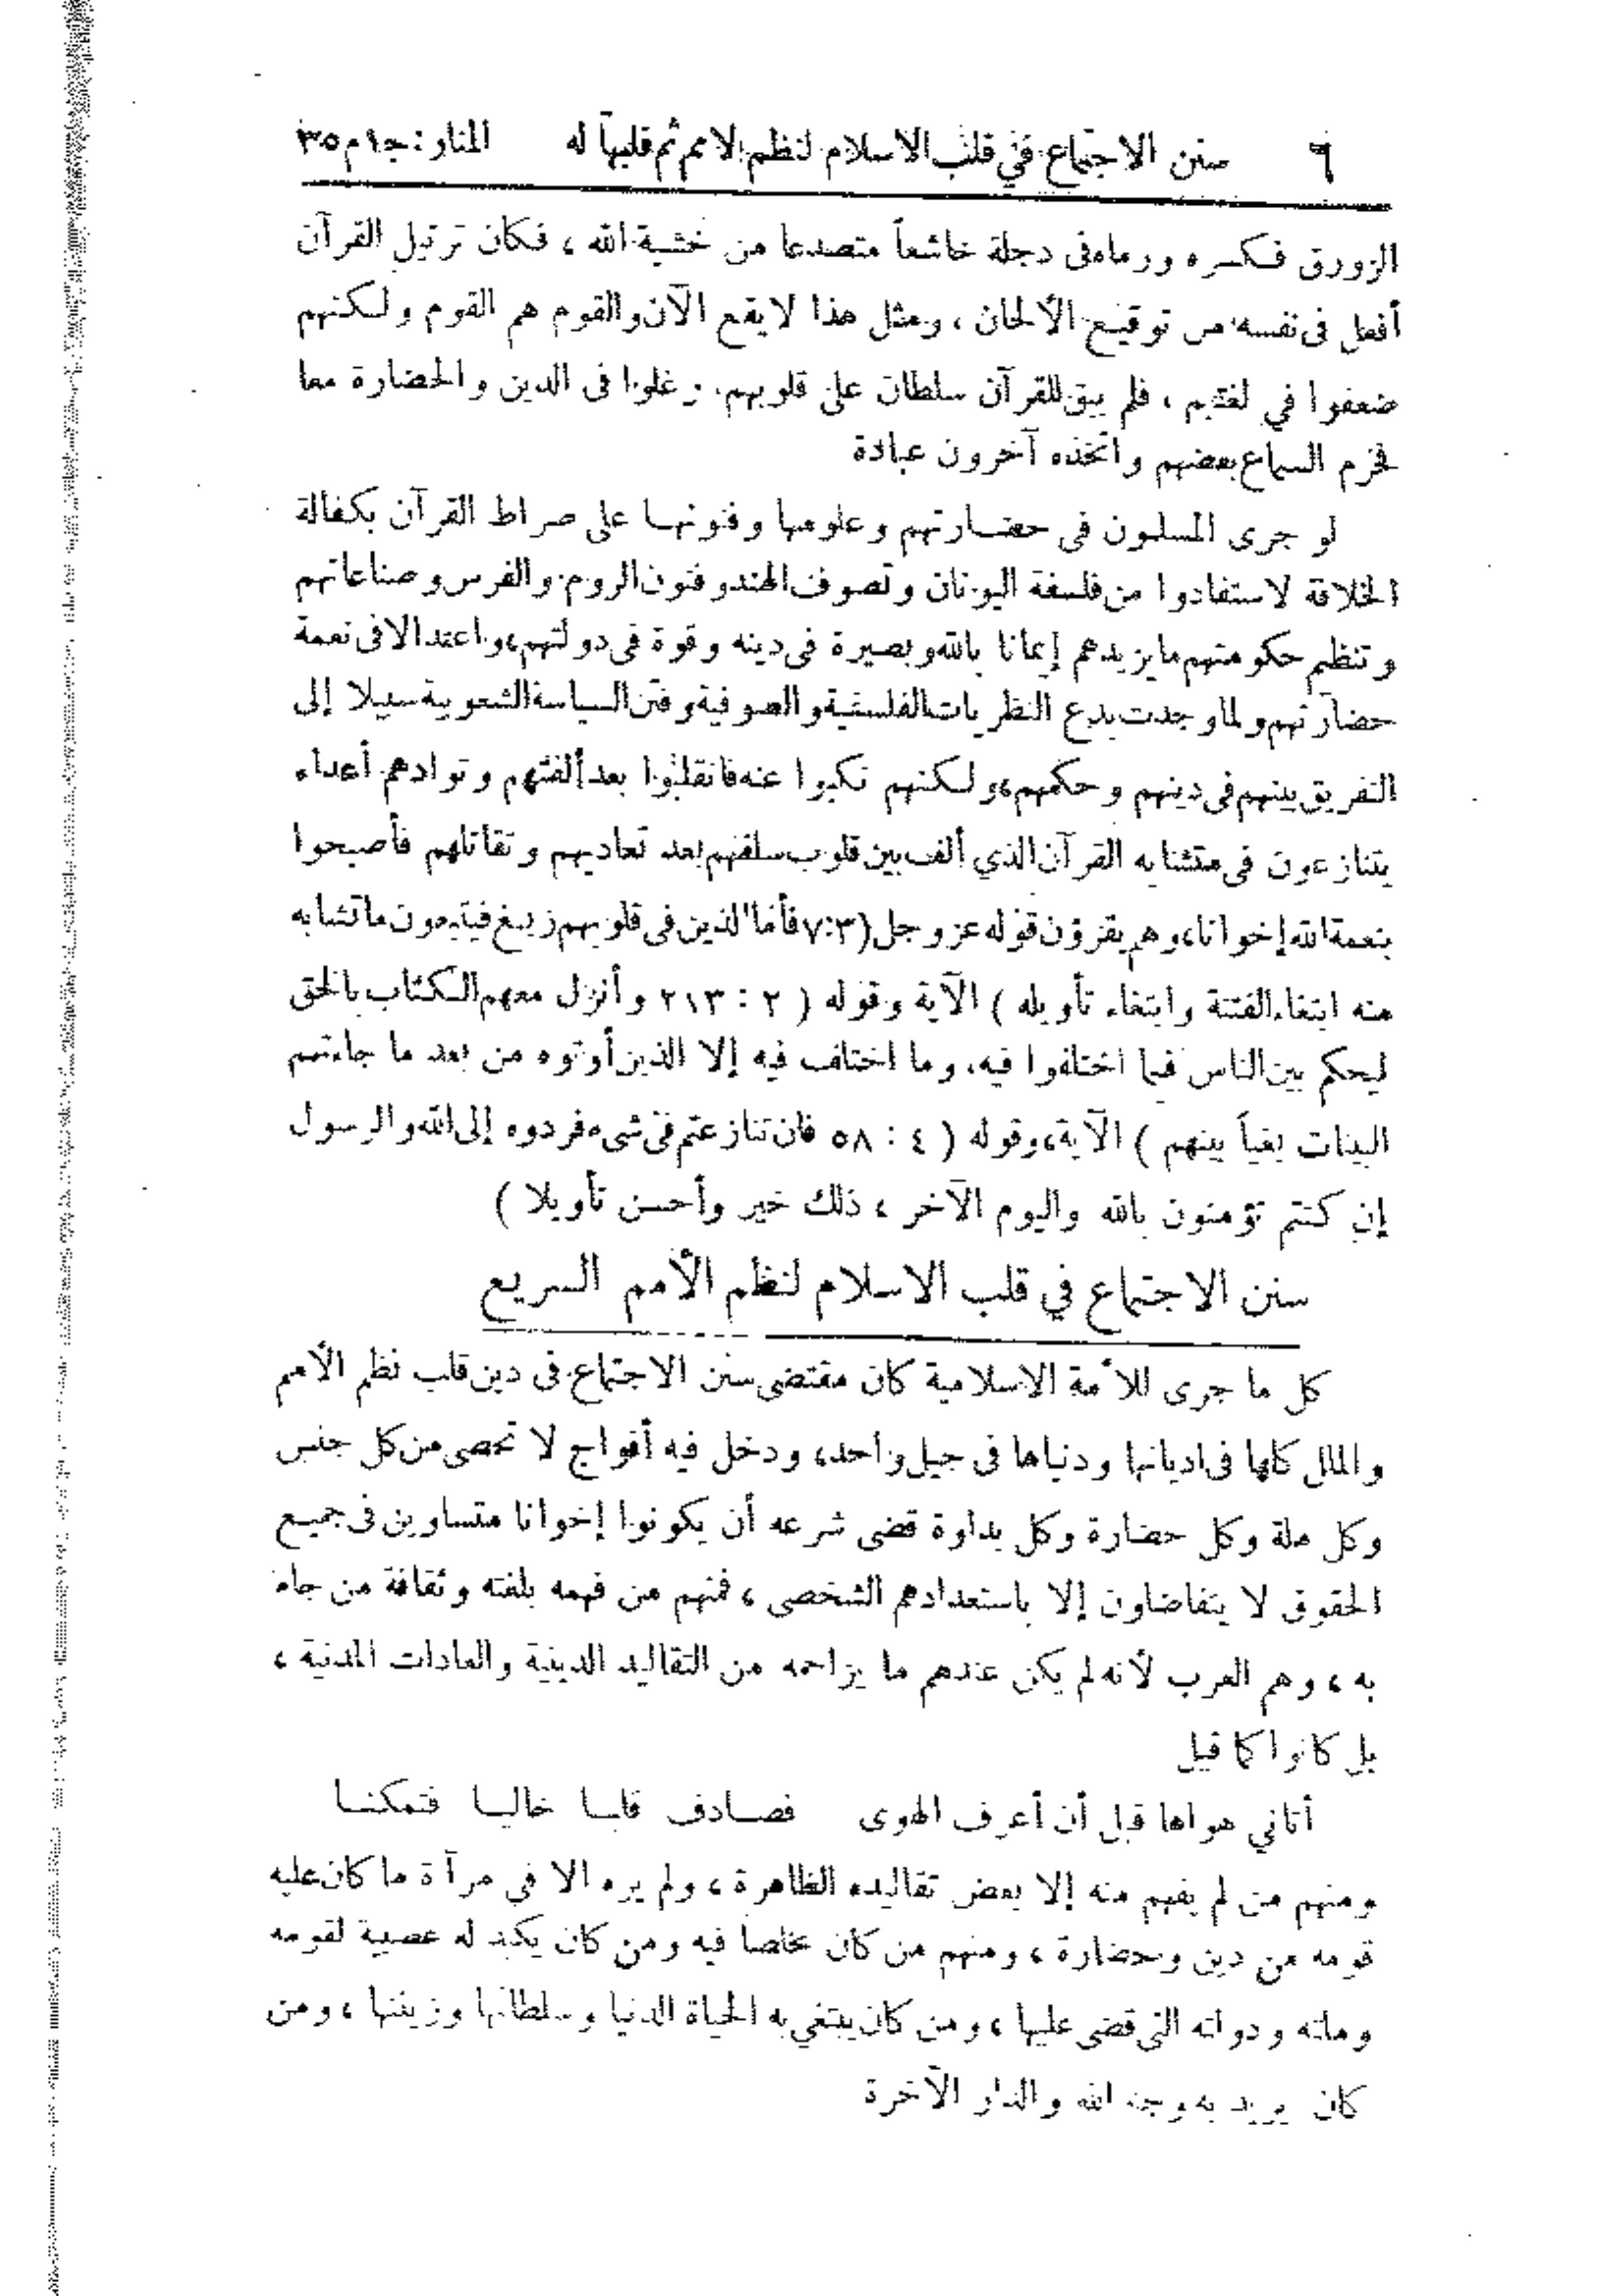 ٦ سنن الاجتماع في قلب الاسلام لنظم الامم ثم قلبها له المنار: ج١م٣٥
الزورق فكسره ورماه في دجلة خاشعاً متصدعا من خشية الله ، فكان ترتيل القرآن
أفعل في نفسه من توقيع الألحان ، ومثل هذا لا يقع الآن والقوم هم القوم ولكنهم
ضعفوا في لغتهم ، فلم يبق للقرآن سلطان على قلوبهم. وغلوا في الدين والحضارة معا
فحرم السماع بعضهم واتخذه آخرون عبادة
لو جرى المسلمون في حضارتهم وعلومها وفنونها على صراط القرآن بكفالة
الخلافة لاستفادوا من فلسفة اليونان وتصوف الهند وفنون الروم والفرس وصناعاتهم
وتنظيم حكومتهم ما يزيدهم إيمانا بالله وبصيرة في دينه وقوة في دولتهم، واعتدالا في نعمة
حضارتهم ولما وجدت بدع النظريات الفلسفية والصوفية وفتن السياسة الشعوبية سبيلا إلى
التفريق بينهم في دينهم وحكمهم، ولكنهم نكبوا عنه فانقلبوا بعد ألفتهم وتوادهم أعداء
يتنازعون في متشابه القرآن الذي ألف بين قلوب سلفهم بعد تعاديهم وتقاتلهم فأصبحوا
بنعمة الله إخوانا، وهم يقرؤن قوله عز وجل (٧:٣ فأما الذين في قلوبهم زيغ فيتبعون ما تشابه
منه ابتغاء الفتنة وابتغاء تأويله ) الآية وقوله ( ٢ : ٢١٣ وأنزل معهم الكتاب بالحق
ليحكم بين الناس فيما اختلفوا فيه، وما اختلف فيه إلا الذين أوتوه من بعد ما جاءتهم
البينات بغياً بينهم ) الآية، وقوله ( ٤ : ٥٨ فان تنازعتم في شيء فردوه إلى الله والرسول
إن كنتم تؤمنون بالله واليوم الآخر ، ذلك خير وأحسن تأويلا )
سنن الاجتماع في قلب الاسلام لنظم الأمم السريع
كل ما جرى للأمة الاسلامية كان مقتضى سنن الاجتماع في دين قلب نظم الأمم
والملل كلها في اديانها ودنياها في جيل واحد، ودخل فيه أفواج لا تحصى من كل جنس
وكل ملة وكل حضارة وكل بداوة قضى شرعه أن يكونوا إخوانا متساوين في جميع
الحقوق لا يتفاضلون إلا باستعدادهم الشخصي ، فمنهم من فهمه بلغته وثقافة من جاء
به ، وهم العرب لأنه لم يكن عندهم ما يزاحمه من التقاليد الدينية والعادات المدنية ،
بل كانوا كما قيل
أتاني هواها قبل أن أعرف الهوى فصادف قلبا خاليا فتمكنا
ومنهم من لم يفهم منه إلا بعض تقاليده الظاهرة ، ولم يره الا في مرآة ما كان عليه
قومه من دين وحضارة ، ومنهم من كان مخلصا فيه ومن كان يكيد له عصبية لقومه
وملته ودولته التي قضى عليها ، ومن كان يبتغي به الحياة الدنيا وسلطانها وزينتها ، ومن
كان يريد به وجه الله والدار الآخرة